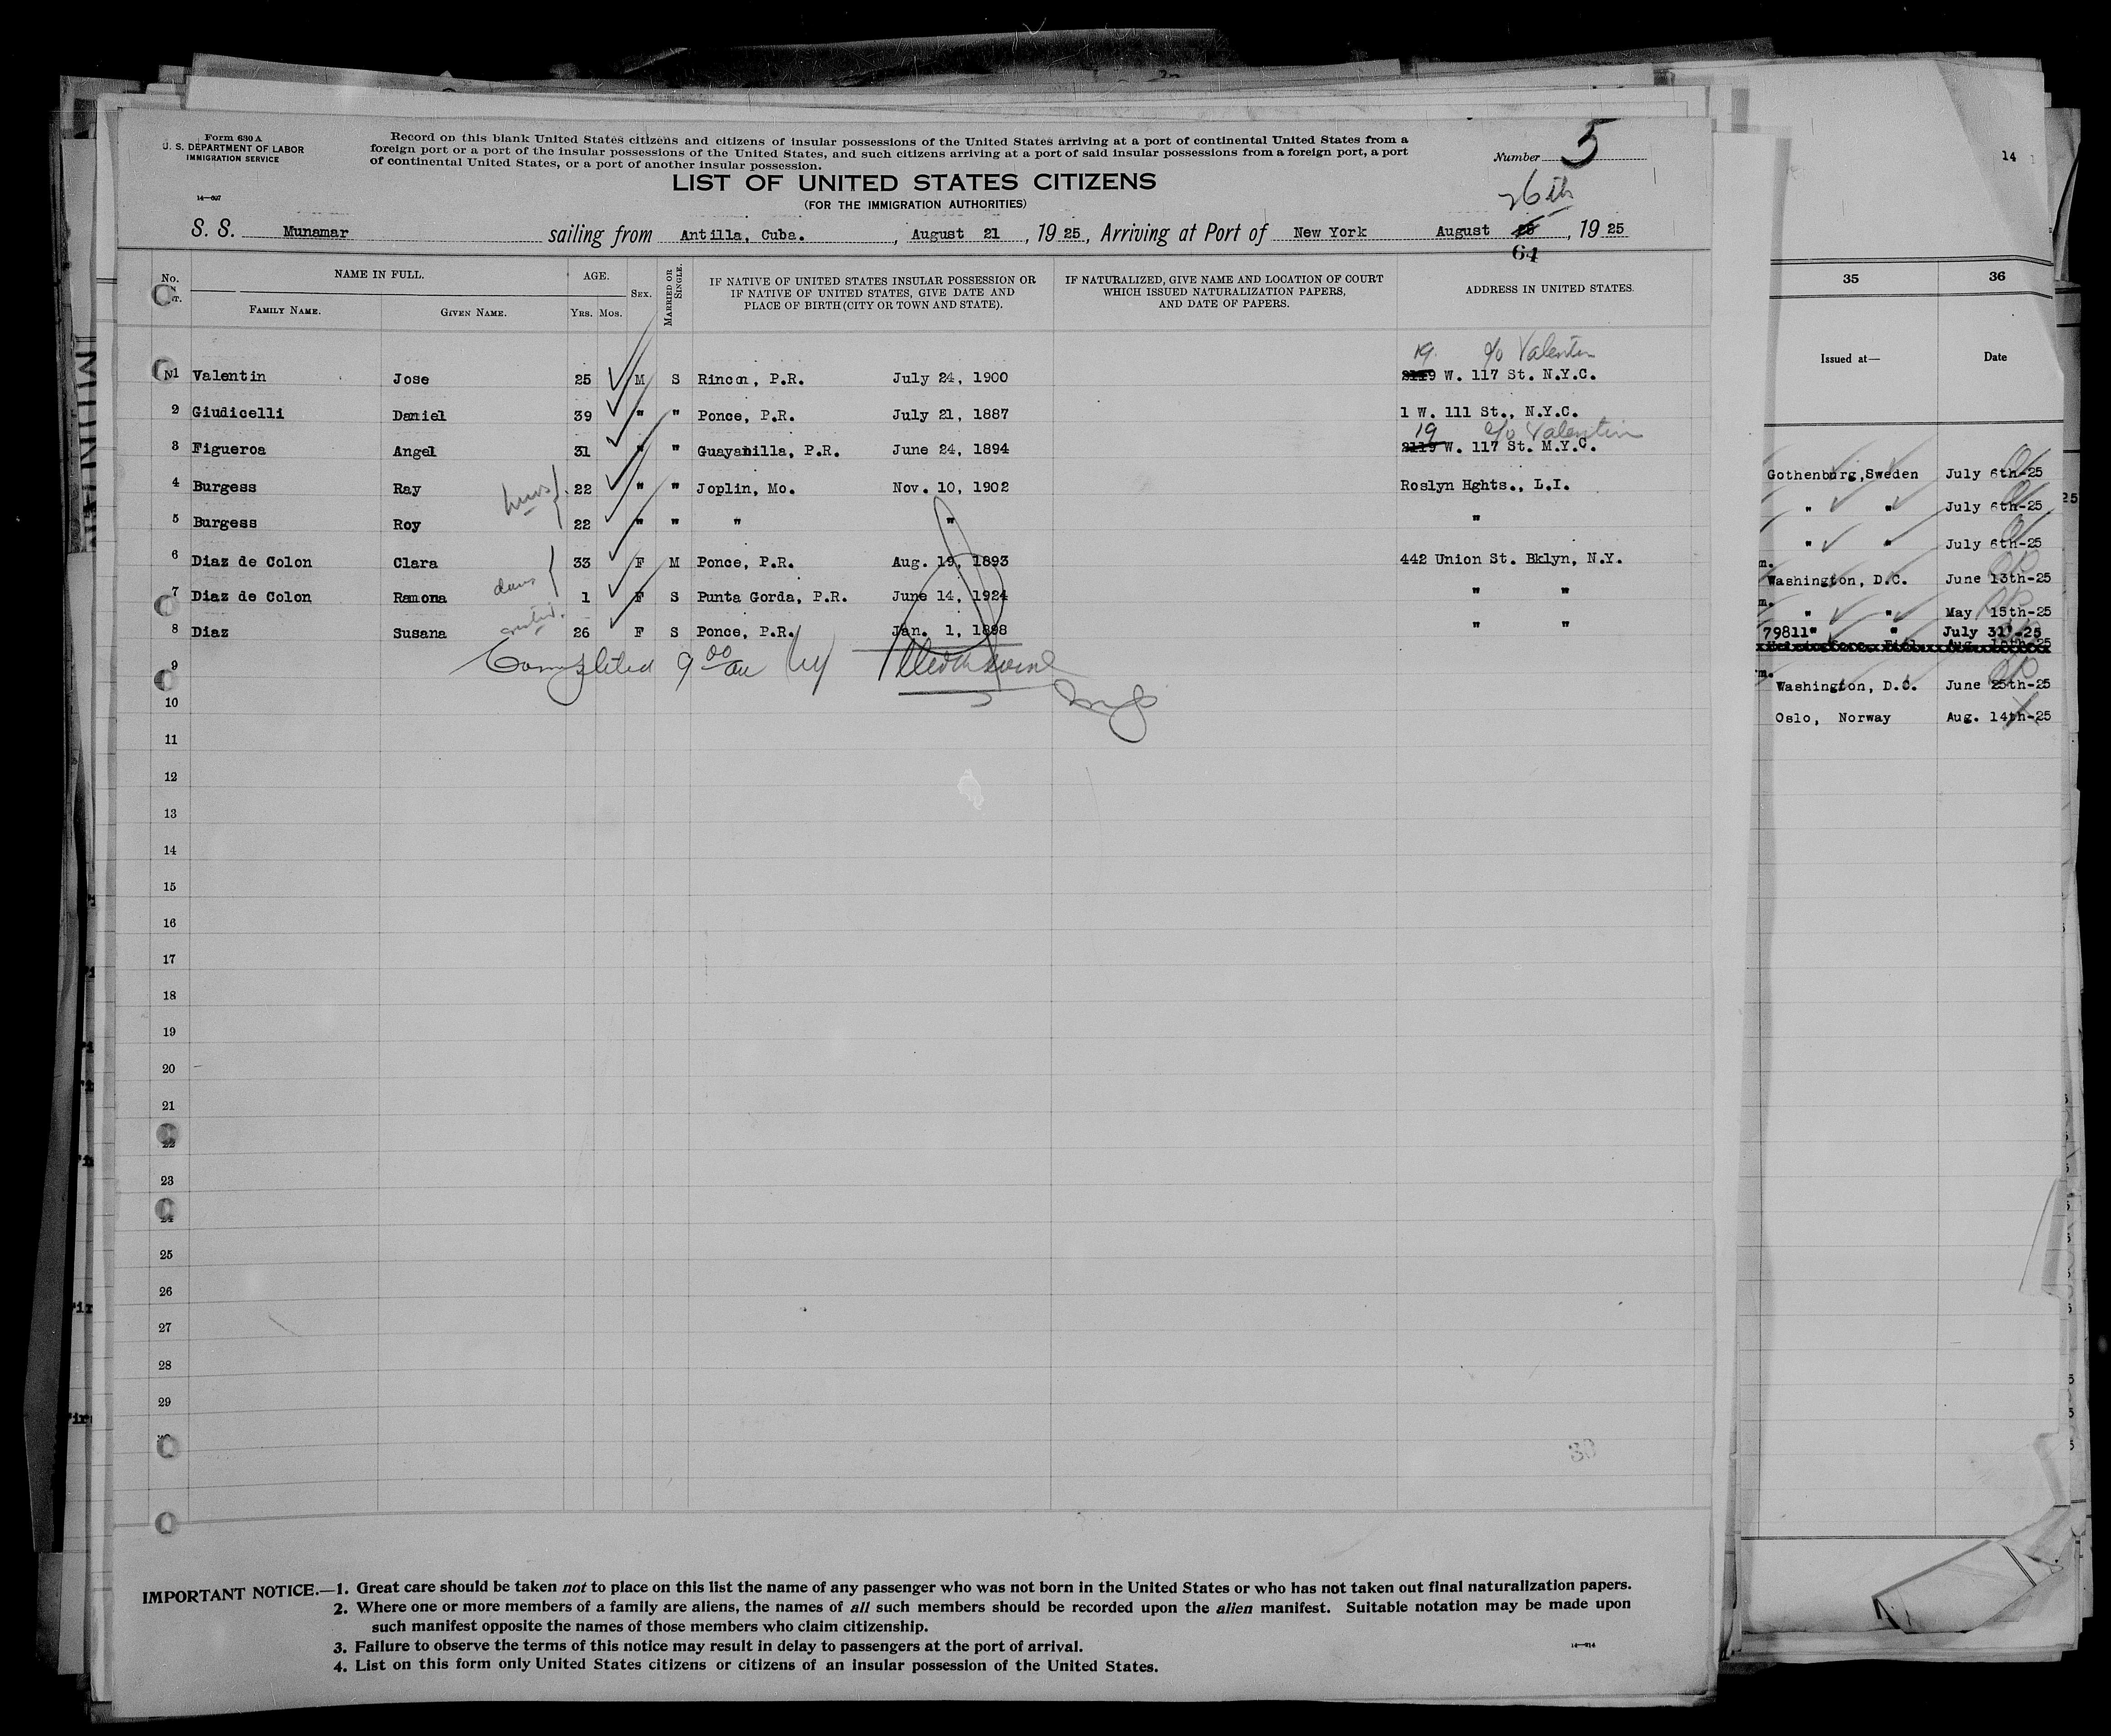 Form 630 A
U. S. DEPARTMENT OF LABOR
IMMIGRATION SERVICE
14—697
Record on this blank United States citizens and citizens of insular possessions of the United States arriving at a port of continental United States from a
foreign port or a port of the insular possessions of the United States, and such citizens arriving at a port of said insular possessions from a foreign port, a port
of continental United States, or a port of another insular possession.
Number 5
LIST OF UNITED STATES CITIZENS
(FOR THE IMMIGRATION AUTHORITIES)
26th
S. S. Munamar sailing from Antilla, Cuba. , August 21 , 19 25 , Arriving at Port of New York August 25 , 19 25
64
No. NAME IN FULL. AGE. SEX. MARRIED OR SINGLE. IF NATIVE OF UNITED STATES INSULAR POSSESSION OR IF NATIVE OF UNITED STATES, GIVE DATE AND PLACE OF BIRTH (CITY OR TOWN AND STATE). IF NATURALIZED, GIVE NAME AND LOCATION OF COURT WHICH ISSUED NATURALIZATION PAPERS, AND DATE OF PAPERS. ADDRESS IN UNITED STATES.
FAMILY NAME. GIVEN NAME. YRS. MOS.
19 c/o Valentin
1 Valentin Jose 25 M S Rincon, P.R. July 24, 1900 2119 W. 117 St. N.Y.C.
2 Giudicelli Daniel 39 " " Ponce, P.R. July 21, 1887 1 W. 111 St., N.Y.C.
19 c/o Valentin
3 Figueroa Angel 31 " " Guayanilla, P.R. June 24, 1894 2119 W. 117 St. M.Y.C.
4 Burgess Ray 22 " " Joplin, Mo. Nov. 10, 1902 Roslyn Hghts., L.I.
5 Burgess Roy 22 " " " " "
6 Diaz de Colon Clara 33 F M Ponce, P.R. Aug. 19, 1893 442 Union St. Bklyn, N.Y.
7 Diaz de Colon Ramona 1 F S Punta Gorda, P.R. June 14, 1924 " "
8 Diaz Susana 26 F S Ponce, P.R. Jan. 1, 1898 " "
Completed 9 00 am by
9
10
11
12
13
14
15
16
17
18
19
20
21
22
23
24
25
26
27
28
29
30
IMPORTANT NOTICE.—1. Great care should be taken not to place on this list the name of any passenger who was not born in the United States or who has not taken out final naturalization papers.
2. Where one or more members of a family are aliens, the names of all such members should be recorded upon the alien manifest. Suitable notation may be made upon
such manifest opposite the names of those members who claim citizenship.
3. Failure to observe the terms of this notice may result in delay to passengers at the port of arrival.
4. List on this form only United States citizens or citizens of an insular possession of the United States.
14
35 36
Issued at— Date
Gothenburg, Sweden July 6th-25
" " July 6th-25
" " July 6th-25
Washington, D.C. June 13th-25
" " May 15th-25
79811" " July 31'-25
Washington, D.C. June 25th-25
Oslo, Norway Aug. 14th-25